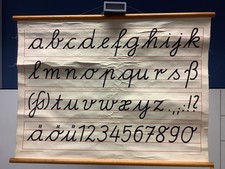 abcdefghijk
lmnopqursß
(ſs)tuvwxyz.,;:!?
äöü1234567890